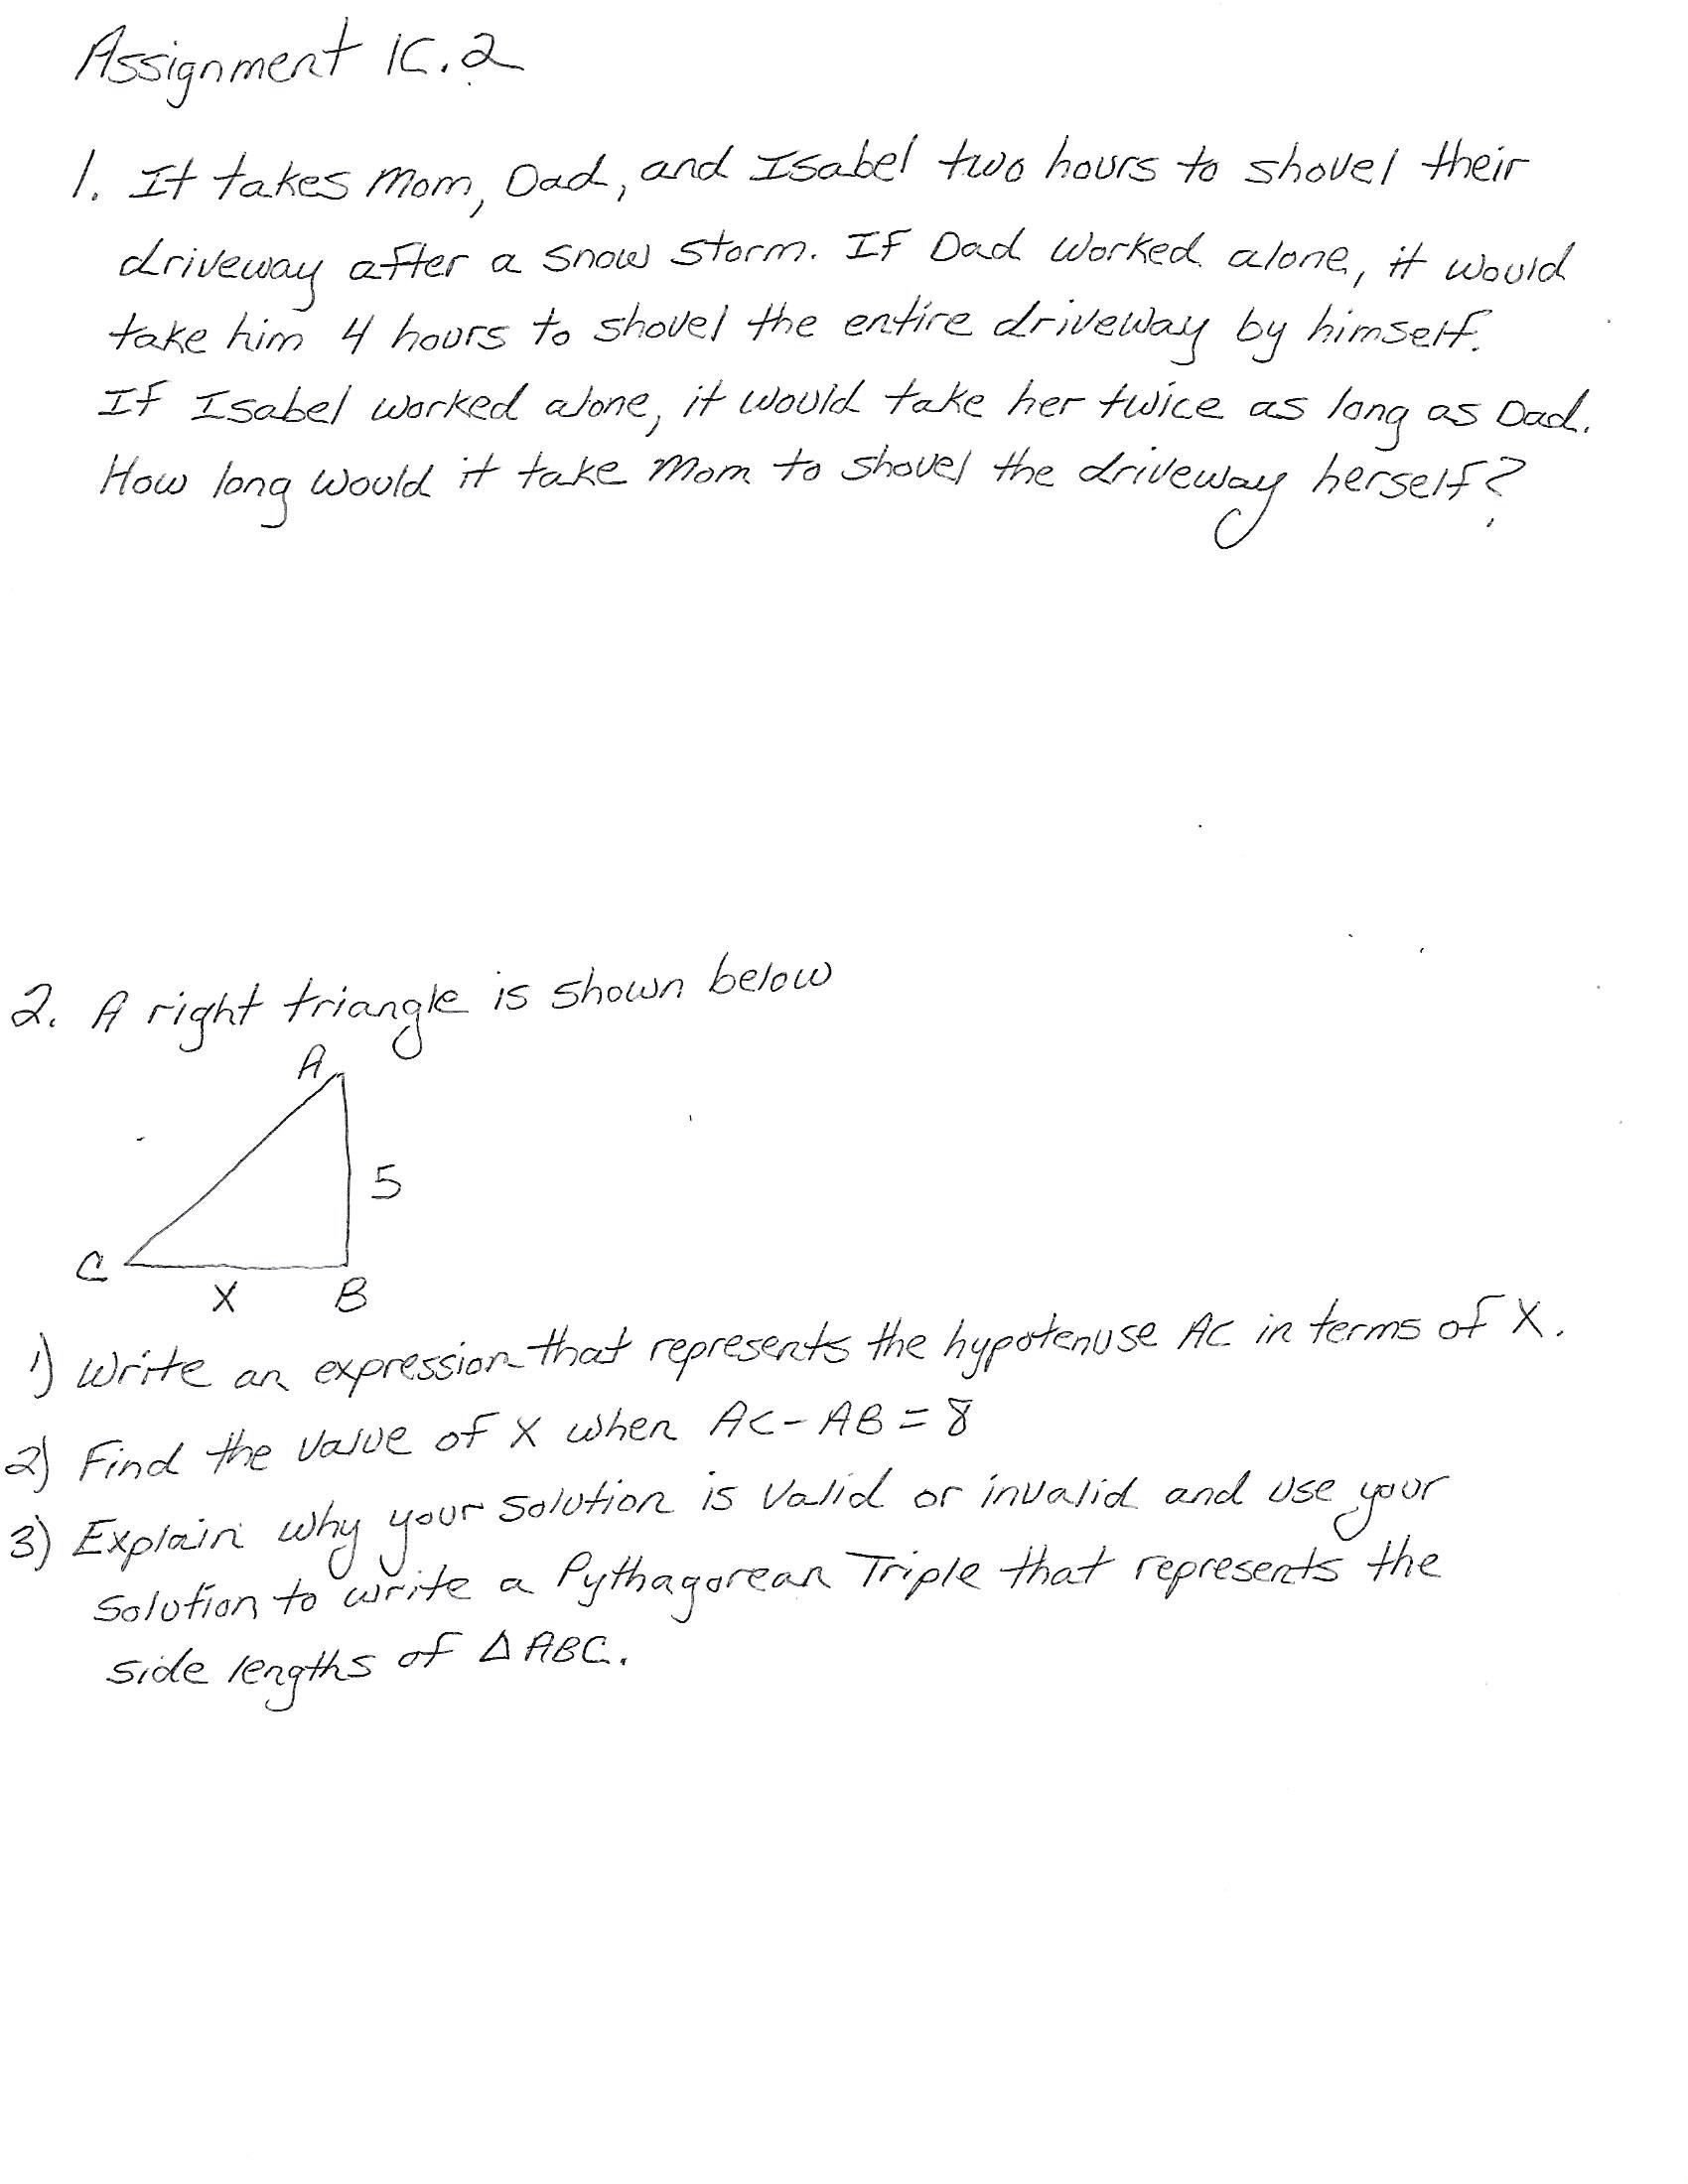 Assignment 1C.2
1. It takes Mom, Dad, and Isabel two hours to shovel their
driveway after a snow storm. If Dad worked alone, it would
take him 4 hours to shovel the entire driveway by himself.
If Isabel worked alone, it would take her twice as long as Dad.
How long would it take Mom to shovel the driveway herself?
2. A right triangle is shown below
A
5
C
X
B
1) Write an expression that represents the hypotenuse AC in terms of X.
2) Find the value of X when AC - AB = 8
3) Explain why your solution is valid or invalid and use your
solution to write a Pythagorean Triple that represents the
side lengths of △ABC.